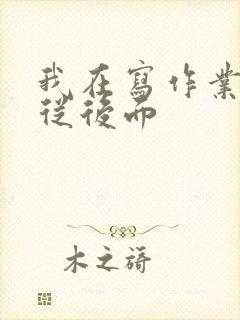 我在寫作業
從後而
木之旖